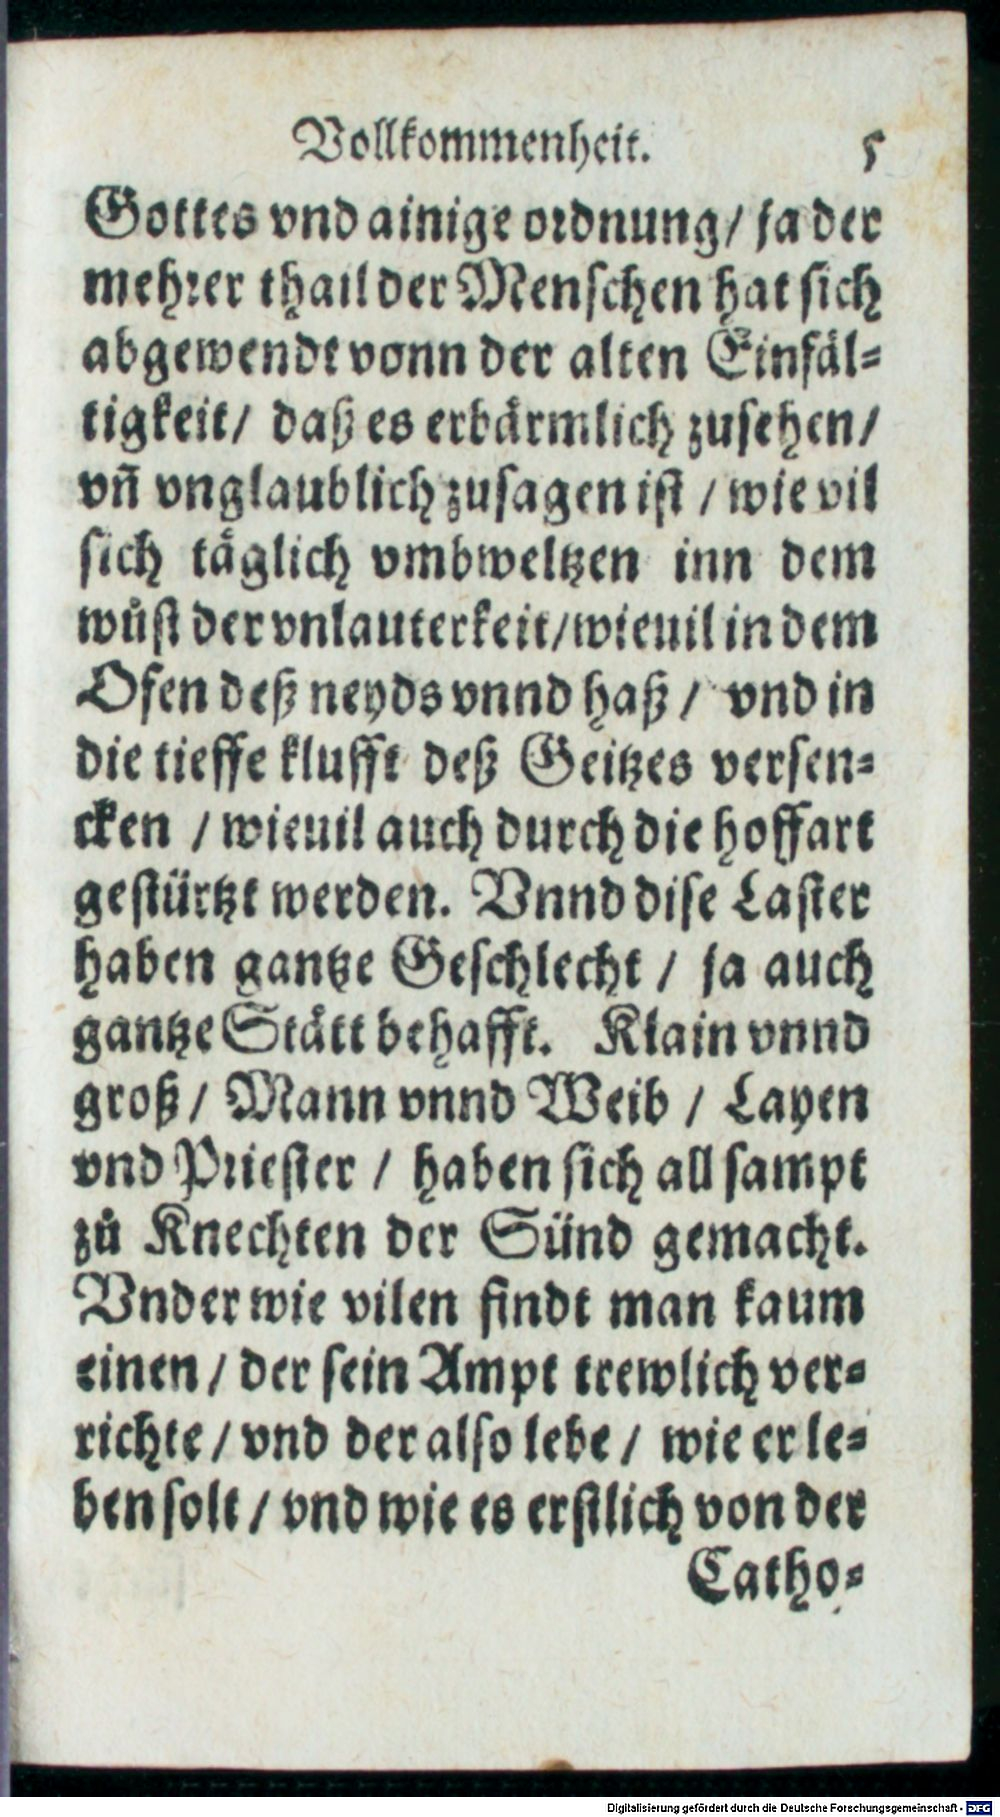 Vollkommenheit. 5
Gottes vnd ainige ordnung/ ja der
mehrer thail der Menschen hat sich
abgewendt vonn der alten Einfäl-
tigkeit/ daß es erbärmlich zusehen/
vn̄ vnglaublich zusagen ist / wie vil
sich täglich vmbweltzen inn dem
wůst der vnlauterkeit/wieuil in dem
Ofen deß neyds vnnd haß / vnd in
die tieffe klufft deß Geitzes versen-
cken / wieuil auch durch die hoffart
gestürtzt werden. Vnnd dise Laster
haben gantze Geschlecht / ja auch
gantze Stätt behafft. Klain vnnd
groß/ Mann vnnd Weib / Layen
vnd Priester / haben sich all sampt
zů Knechten der Sünd gemacht.
Vnder wie vilen findt man kaum
einen / der sein Ampt trewlich ver-
richte / vnd der also lebe / wie er le-
ben solt / vnd wie es erstlich von der
Catho-
Digitalisierung gefördert durch die Deutsche Forschungsgemeinschaft - DFG